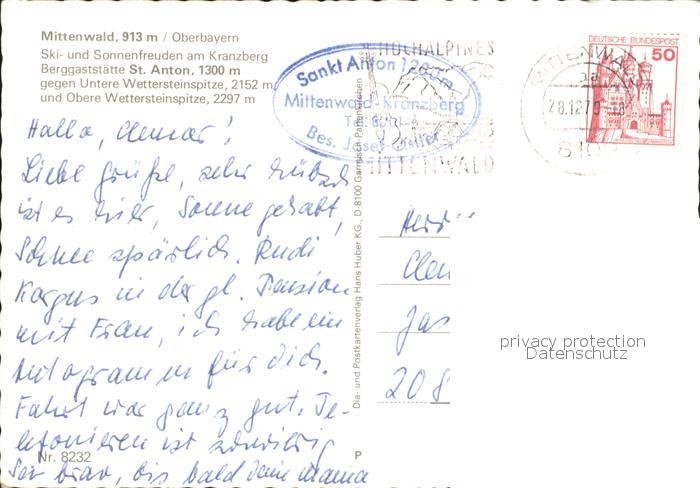 Mittenwald, 913 m / Oberbayern
Ski- und Sonnenfreuden am Kranzberg
Berggaststätte St. Anton, 1300 m
gegen Untere Wettersteinspitze, 2152 m
und Obere Wettersteinspitze, 2297 m
HOCHALPINES
MITTENWALD
Sankt Anton
Mittenwald-Kranzberg
Tel.
Bes. Josef
MITTENWALD
28.12.79
810
DEUTSCHE BUNDESPOST
50
Hallo,
Liebe Grüße, sehr hübsch
ist es hier, Sonne gehabt,
Schnee spärlich. Rudi
Kargus in der gl. Pension
mit Frau, ich habe ein
Autogramm für Dich.
Fahrt war ganz gut. Te-
lefonieren ist schwierig
Sei brav, bis bald Deine Mama
Dia- und Postkartenverlag Hans Huber KG., D-8100 Garmisch-Partenkirchen
Herr
Clem
Jas
208
privacy protection
Datenschutz
Nr. 8232
P